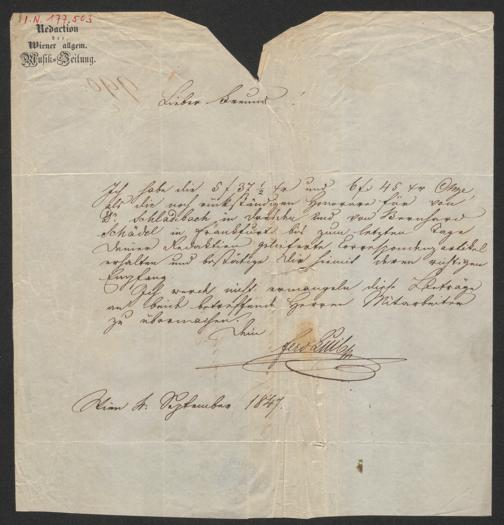 I.N. 177,503
Redaction
der
Wiener allgem.
Musik-Zeitung.
Lieber Freund!
Ich habe die 5 f 37 ½ xr und 6 f. 45 xr CMze
als die noch rückständigen Honorare für von
Dr. Schladebach in Dresden und von Bernhard
Schädel in Frankfurt bis zum letzten Tage
Deiner Redaktion gelieferte Correspondenzartikel
erhalten und bestätige Dir hiemit deren richtigen
Empfang
Ich werde nicht ermangeln diese Beträge
an beide betreffende Herren Mitarbeiter
zu übermachen.
Dein
Ferd. Luib
Wien 4. September 1847.